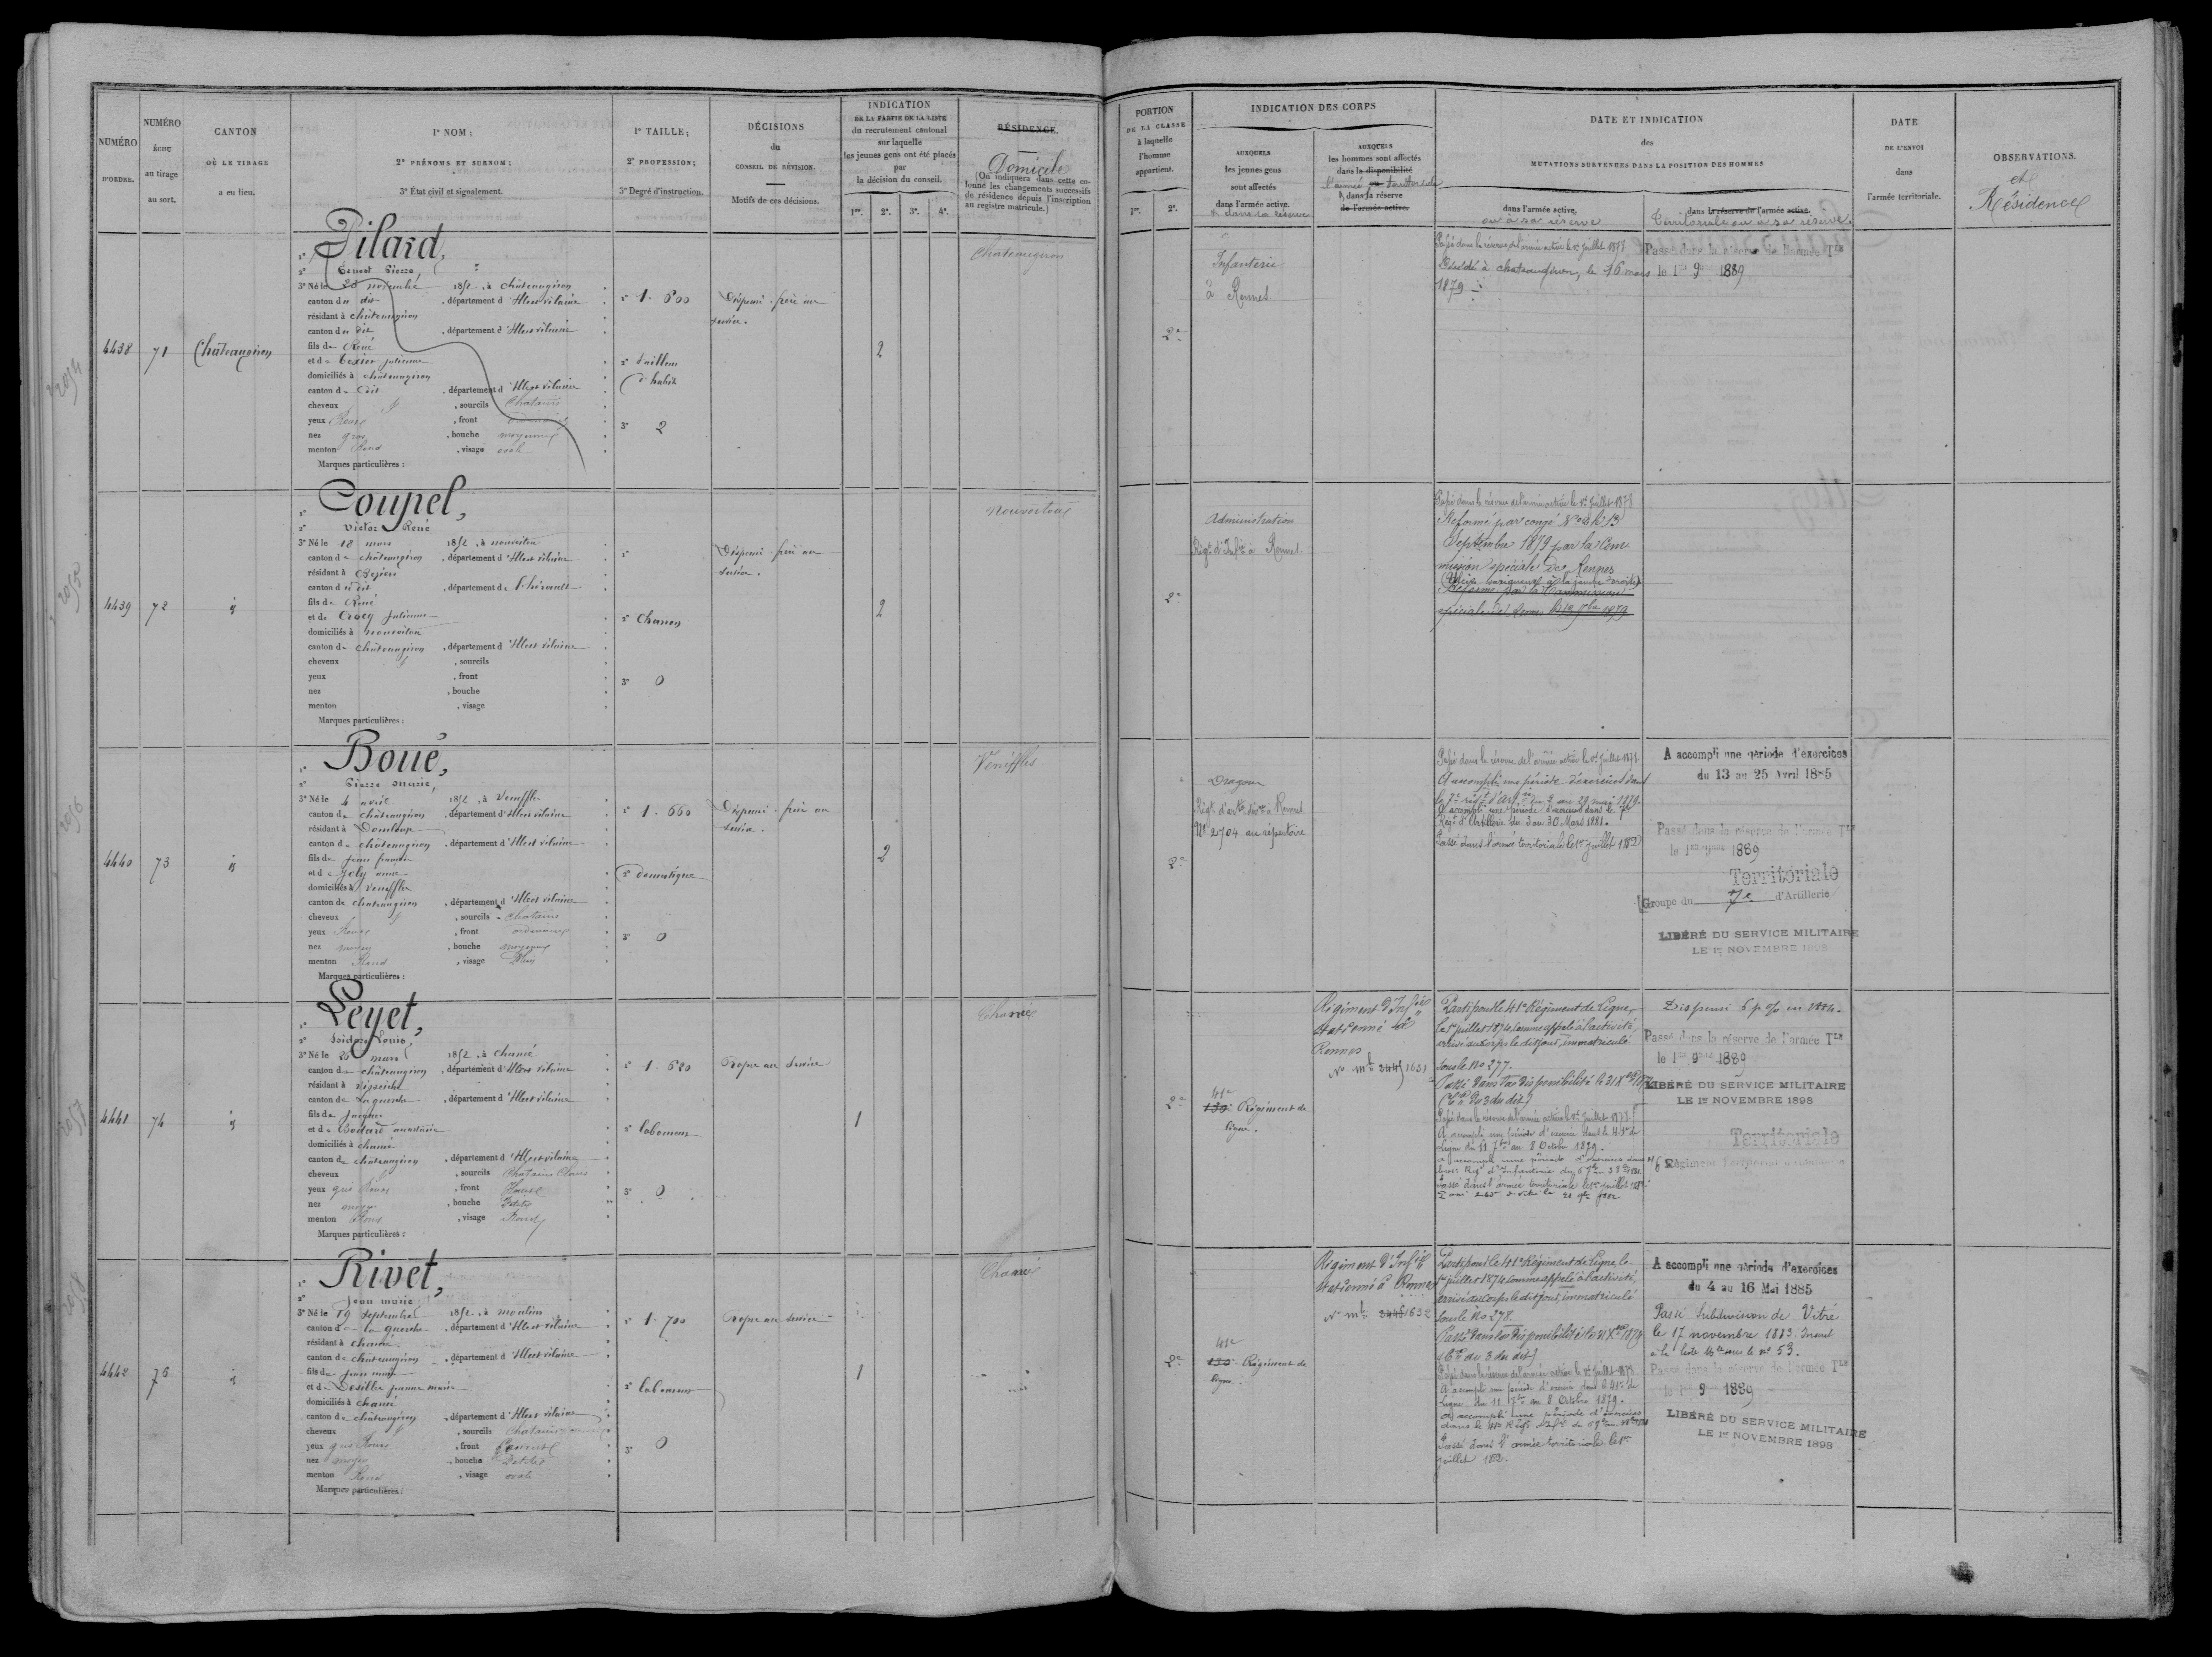 NUMÉRO
D'ORDRE.
NUMÉRO
ÉCHU
au tirage
au sort.
CANTON
OÙ LE TIRAGE
a eu lieu.
1° NOM;
2° PRÉNOMS ET SURNOM;
3° État civil et signalement.
1° TAILLE;
2° PROFESSION;
3° Degré d'instruction.
DÉCISIONS
du
CONSEIL DE RÉVISION.
Motifs de ces décisions.
INDICATION
DE LA PARTIE DE LA LISTE
du recrutement cantonal
sur laquelle
les jeunes gens ont été placés
par
la décision du conseil.
1re. 2e. 3e. 4e.
RÉSIDENCE
Domicile
(On indiquera dans cette co-
lonne les changements successifs
de résidence depuis l'inscription
au registre matricule.)
PORTION
DE LA CLASSE
à laquelle
l'homme
appartient.
1re. 2e.
INDICATION DES CORPS
AUXQUELS
les jeunes gens
sont affectés
dans l'armée active.
& dans sa réserve
AUXQUELS
les hommes sont affectés
dans la disponibilité
l'armée ou territoriale
& dans sa réserve
de l'armée active.
DATE ET INDICATION
des
MUTATIONS SURVENUES DANS LA POSITION DES HOMMES
dans l'armée active,
ou à sa réserve
dans la réserve de l'armée active.
Territoriale ou à sa réserve.
DATE
DE L'ENVOI
dans
l'armée territoriale.
OBSERVATIONS.
et
Résidence
4438 71 Châteaugiron
1° Pilard,
2° Ernest Pierre,
3° Né le 20 novembre 1852, à châteaugiron
canton du dit, département d'Ille et vilaine
résidant à châteaugiron
canton du dit, département d'Ille et vilaine
fils de René
et de Texier julienne
domiciliés à châteaugiron
canton de dit, département d'Ille et vilaine
cheveux, sourcils Chatains
yeux Roux, front ordinaire
nez gros, bouche moyenne
menton Rond, visage ovale
Marques particulières:
1° 1.600
2° tailleur
d'habits
3° 2
Dispensé. frère au
service.
2
Chateaugiron
2e
Infanterie
à Rennes
Passé dans la réserve de l'armée active le 1er juillet 1877
Décédé à chateaugiron, le 16 mars
1879
Passé dans la réserve de l'armée Tle
le 1er 9 1889
4439 72 id
1° Coupel,
2° Victor René
3° Né le 18 mars 1852, à nouvoitou
canton de châteaugiron, département d'Ille et vilaine
résidant à Béziers
canton du dit, département de l'hérault
fils de René
et de Crocq Julienne
domiciliés à nouvoitou
canton de châteaugiron, département d'Ille et vilaine
cheveux, sourcils
yeux, front
nez, bouche
menton, visage
Marques particulières:
1°
2° Charron
3° 0
Dispensé. frère au
service.
2
Nouvoitou
2e
Administration
Régt d'Infie à Rennes
Passé dans la réserve de l'armée active le 1er juillet 1877
Réformé par congé No 2 le 13
Septembre 1879 par la Com-
mission spéciale de Rennes
(Ulcère variqueux à la jambe droite)
Réformé par la Commission
spéciale de Rennes le 13 7bre 1879
4440 73 id
1° Boué,
2° Pierre Marie,
3° Né le 4 avril 1852, à Veneffles
canton de châteaugiron, département d'Ille et vilaine
résidant à Domloup
canton de châteaugiron, département d'Ille et vilaine
fils de Jean françois
et de Joly anne
domiciliés à Veneffles
canton de chateaugiron, département d'Ille et vilaine
cheveux, sourcils Chatains
yeux Roux, front ordinaire
nez moyen, bouche moyenne
menton Rond, visage Plein
Marques particulières:
1° 1.660
2° domestique
3° 0
Dispensé. frère au
service.
2
Vénèffles
2e
Dragon
Régt d'artie divre à Rennes
No 2704 au répertoire
Passé dans la réserve de l'armée active le 1er juillet 1877
A accompli une période d'exercices dans
le 7e régt d'Artie du 2 au 29 mai 1879.
A accompli une période d'exercices dans le 7e
Régt d'Artillerie du 3 au 30 Mars 1881.
Passé dans l'armée territoriale le 1er juillet 1882
A accompli une période d'exercices
du 13 au 25 Avril 1885
Passé dans la réserve de l'armée Tle
le 1er 9bre 1889
Territoriale
Groupe du 7e d'Artillerie
LIBÉRÉ DU SERVICE MILITAIRE
LE 1er NOVEMBRE 1898
4441 74 id
1° Leyet,
2° Isidore Louis,
3° Né le 26 mars 1852, à chancé
canton de châteaugiron, département d'Ille et vilaine
résidant à Visseiche
canton de La guerche, département d'Ille et vilaine
fils de Jacques
et de Bodard anastasie
domiciliés à chancé
canton de châteaugiron, département d'Ille et vilaine
cheveux, sourcils Chatains Clairs
yeux gris Roux, front Haut
nez moyen, bouche Petite
menton Rond, visage Rond
Marques particulières:
1° 1.620
2° laboureur
3° 0
Propre au service
1
Chancé
2e
41e
130e Régiment de
ligne.
Régiment d'Infie
stationné à
Rennes
No mle 2445 1631
Parti pour le 41e Régiment de Ligne,
le 1er juillet 1874, comme appelé à l'activité,
arrivé au corps le dit jour, immatriculé
sous le No 277.
Passé dans la disponibilité le 31 Xbre 1874
Passé dans la réserve de l'armée active le 1er juillet 1877
A accompli une période d'exercice dans le 41e de
Ligne du 11 7bre au 8 Octobre 1879.
Passé dans l'armée territoriale le 1er juillet 1882
Dispensé 6 p % en 1884.
Passé dans la réserve de l'armée Tle
le 1er 9 1889
LIBÉRÉ DU SERVICE MILITAIRE
LE 1er NOVEMBRE 1898
Territoriale
Régiment
4442 76 id
1° Rivet,
2° Jean marie
3° Né le 19 Septembre 1852, à moulins
canton de la guerche, département d'Ille et vilaine
résidant à chancé
canton de chateaugiron, département d'Ille et vilaine
fils de jean marie
et de Desille jeanne marie
domiciliés à chancé
canton de châteaugiron, département d'Ille et vilaine
cheveux, sourcils Chatains
yeux gris Roux, front
nez moyen, bouche Petite
menton Rond, visage ovale
Marques particulières:
1° 1.700
2° laboureur
3° 0
Propre au service
1
Chancé
2e
41e
130e Régiment de
ligne.
Régiment d'Infie
stationné à Rennes
No mle 2446 1632
Parti pour le 41e Régiment de Ligne, le
1er juillet 1874, comme appelé à l'activité,
arrivé au corps le dit jour, immatriculé
sous le No 278.
Passé dans la disponibilité le 31 Xbre 1874
Passé dans la réserve de l'armée active le 1er juillet 1877
A accompli une période d'exercice dans le 41e de
Ligne du 11 7bre au 8 Octobre 1879.
A accompli une période d'exercices
Passé dans l'armée territoriale le 1er
juillet 1882.
A accompli une période d'exercices
du 4 au 16 Mai 1885
Passé Subdivision de Vitré
le 17 novembre 1883. Inscrit
à la liste sous le No 53.
Passé dans la réserve de l'armée Tle
le 1er 9 1889
LIBÉRÉ DU SERVICE MILITAIRE
LE 1er NOVEMBRE 1898
2056
2057
2058